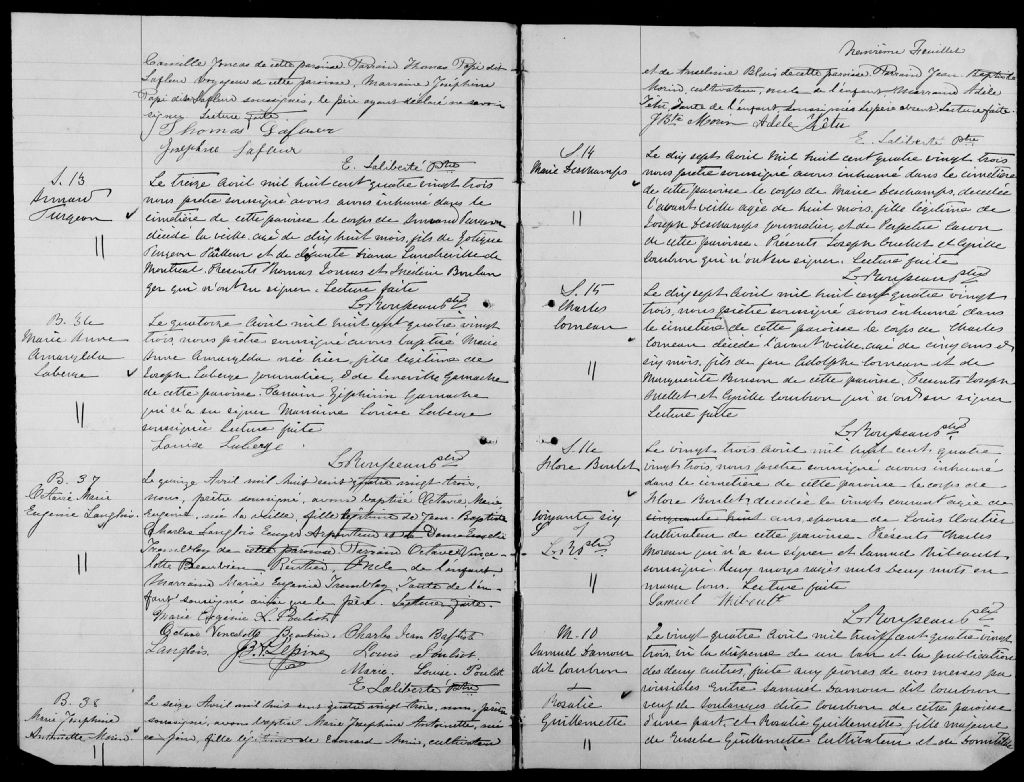 Camille Joncas de cette paroisse Parrain Thomas Papi dit
Lafleur voyageur de cette paroisse, Marraine Joséphine
Papi dit Lafleur soussignés, le père ayant déclaré ne savoir
signer Lecture faite
Thomas Lafleur
Josephine Lafleur
E. Laliberté Ptre
S. 13
Armand
Turgeon
Le treize Avril mil huit cent quatre vingt trois
nous prêtre soussigné avons inhumé dans le
cimetière de cette paroisse le corps de Armand Turgeon
décédé la veille agé de dix huit mois, fils de Zotique
Turgeon Tailleur et de défunte Landreville de
Montreal. Presents Thomas et Boulan
ger qui n'ont su signer. Lecture faite
L. Rousseau ptre
B. 36
Marie Anne
Amarylda
Laberge
Le quatorze Avril mil huit cent quatre vingt
trois, nous prêtre soussigné avons baptisé Marie
Anne Amarylda née hier, fille légitime de
Joseph Laberge journalier, & de Gamache
de cette paroisse. Parrain Zéphirin Gamache
qui n'a su signer Marraine Louise Laberge
soussignée Lecture faite
Louise Laberge
L. Rousseau ptre
B. 37
Octavie Marie
Eugenie Langlois
Le quinze Avril mil huit cent quatre vingt trois,
nous, prêtre soussigné, avons baptisé Octavie Marie
Eugenie, née la veille fille légitime de Jean Baptiste
Charles Langlois Ecuyer Arpenteur et de Dame
Tremblay de cette paroisse Parrain Octave Vince
lotte Beaubien, Rentier, Oncle de l'enfant,
Marraine Marie Eugenie Tremblay, Tante de l'en
fant soussignés ainsi que le père. Lecture faite
Marie Eugenie L. Pouliot
Octave Vincelotte Beaubien Charles Jean Baptist
Langlois. Louis Pouliot
Marie Louise Pouliot
E. Laliberté Ptre
B. 38
Marie Josephine
Antoinette Morin
Le seize Avril mil huit cent quatre vingt trois, nous, prêtre
soussigné, avons baptisé Marie Josephine Antoinette, née
ce jour, fille légitime de Edouard Morin, cultivateur
Neuvième Feuillet
et de Anselmine Blais de cette paroisse Parrain Jean Baptiste
Morin, cultivateur, oncle de l'enfant Marraine Adèle
Têtu, tante de l'enfant soussignés le père absent. Lecture faite.
J. Bte Morin Adele Têtu
E. Laliberté Ptre
S. 14
Marie Deschamps
Le dix sept Avril mil huit cent quatre vingt trois
nous prêtre soussigné avons inhumé dans le cimetière
de cette paroisse le corps de Marie Deschamps, decedée
l'avant veille agée de huit mois, fille légitime de
Joseph Deschamps journalier, et de Perpetue Caron
de cette paroisse. Presents Joseph Ouellet et Cyrille
Courbron qui n'ont su signer. Lecture faite
L. Rousseau ptre
S. 15
Charles
Corneau
Le dix sept Avril mil huit cent quatre vingt
trois, nous prêtre soussigné avons inhumé dans
le cimetière de cette paroisse le corps de Charles
Corneau décédé l'avant veille, agé de cinq ans &
six mois, fils de feu Adolphe Corneau et de
Marguerite de cette paroisse. Presents Joseph
Ouellet et Cyrille Courbron qui n'ont su signer
Lecture faite
L. Rousseau ptre
S. 16
Flore Boulet
soixante six
L. R. ptre
Le vingt trois Avril mil huit cent quatre
vingt trois, nous prêtre soussigné avons inhumé
dans le cimetière de cette paroisse le corps de
Flore Boulet decedée le vingt courant agée de
cinquante huit ans epouse de Louis Cloutier
cultivateur de cette paroisse. Presents Charles
Moreau qui n'a su signer et Samuel Thibeault
soussigné. Deux mots rayés nuls deux mots en
marge bons. Lecture faite
Samuel Thibault
L. Rousseau ptre
M. 10
Samuel Damour
dit Courbron
&
Rosalie
Guillemette
Le vingt quatre Avril mil huit cent quatre vingt
trois, vu la dispense de un ban et la publication
des deux autres, faite aux prônes de nos messes pa
roissiales entre Samuel Damour dit Courbron
veuf de dite Courbron de cette paroisse
d'une part, et Rosalie Guillemette fille majeure
de Eusebe Guillemette cultivateur et de Domitilde